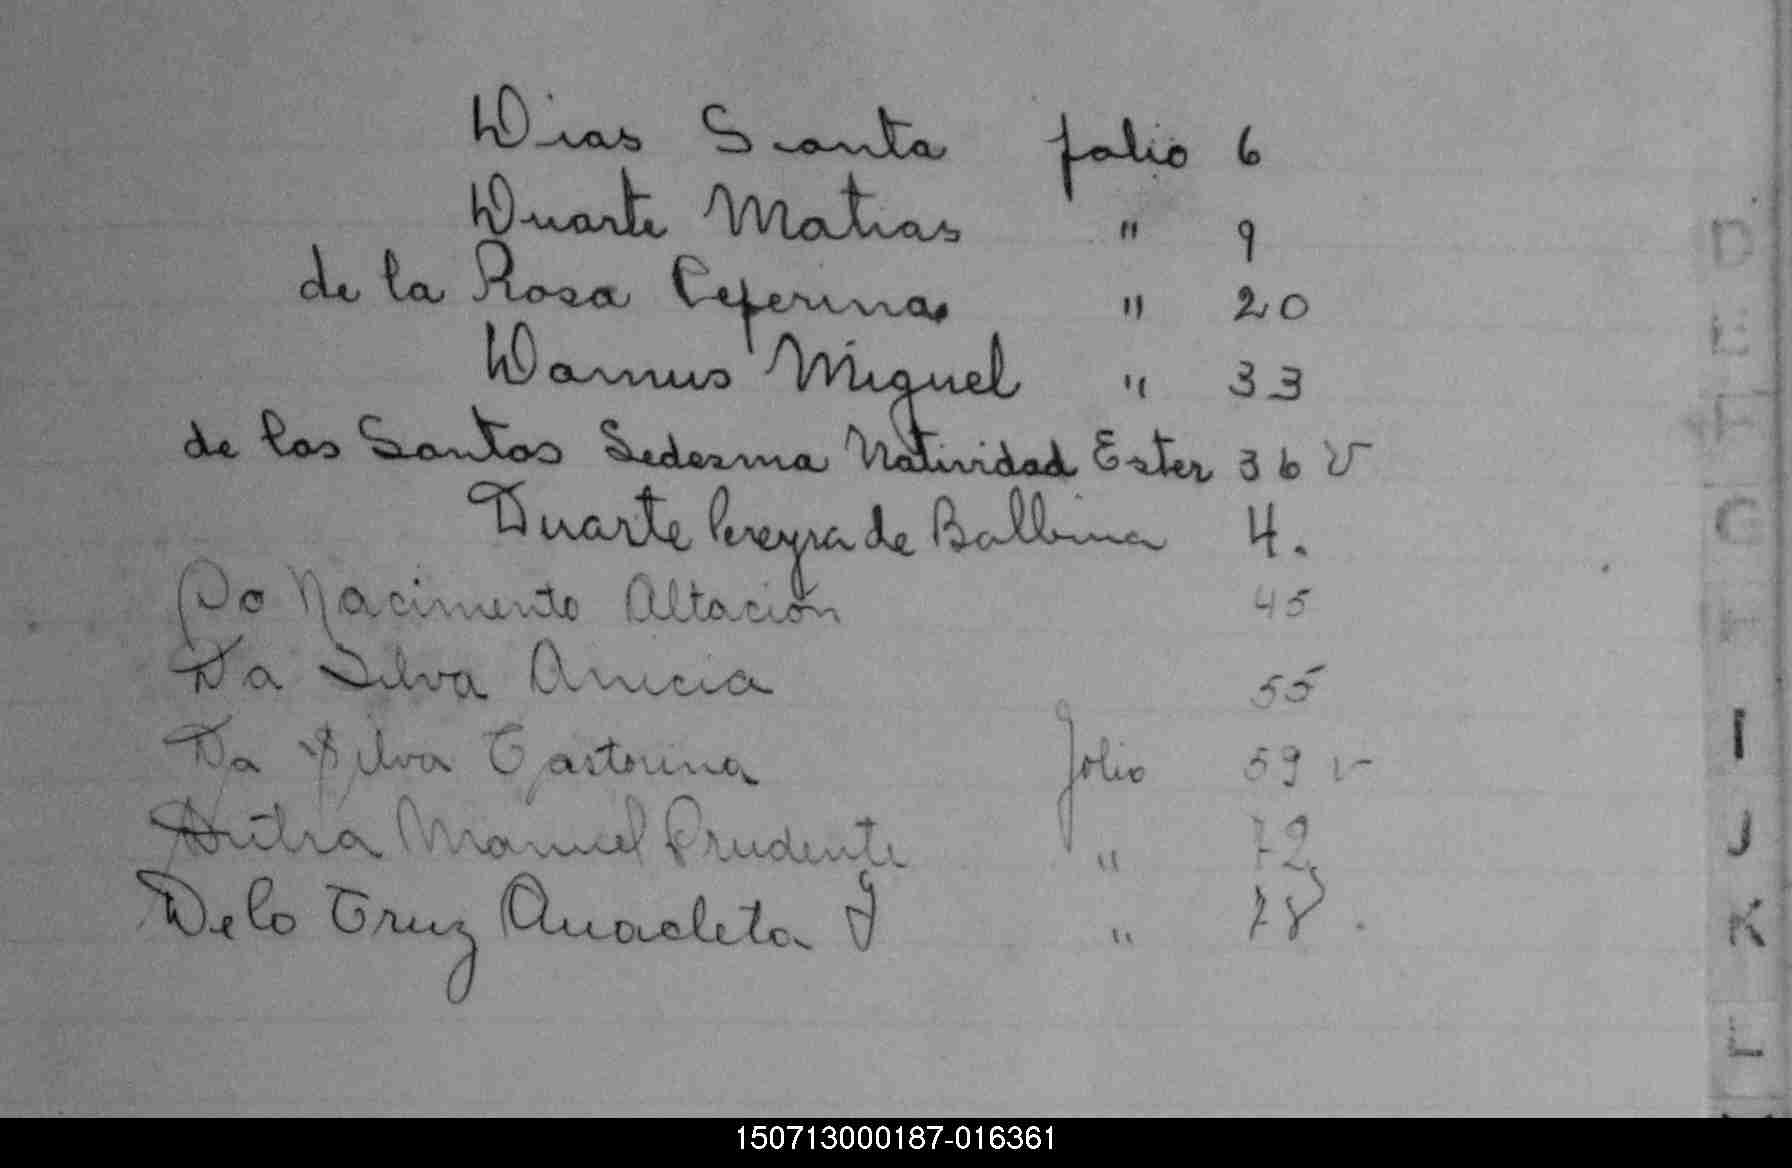 Dias Santa folio 6
Duarte Matias " 9
de la Rosa Ceferina " 20
Damus Miguel " 33
de los Santos Ledesma Natividad Ester 36 v
Duarte Pereyra de Balbina 4.
Do Nacimento Altación 45
Da Silva Anicia 55
Da Silva Castorina folio 59 v
Dutra Manuel Prudente " 72
De la Cruz Anacleta J " 78.
D
E
F
G
I
J
K
L
150713000187-016361